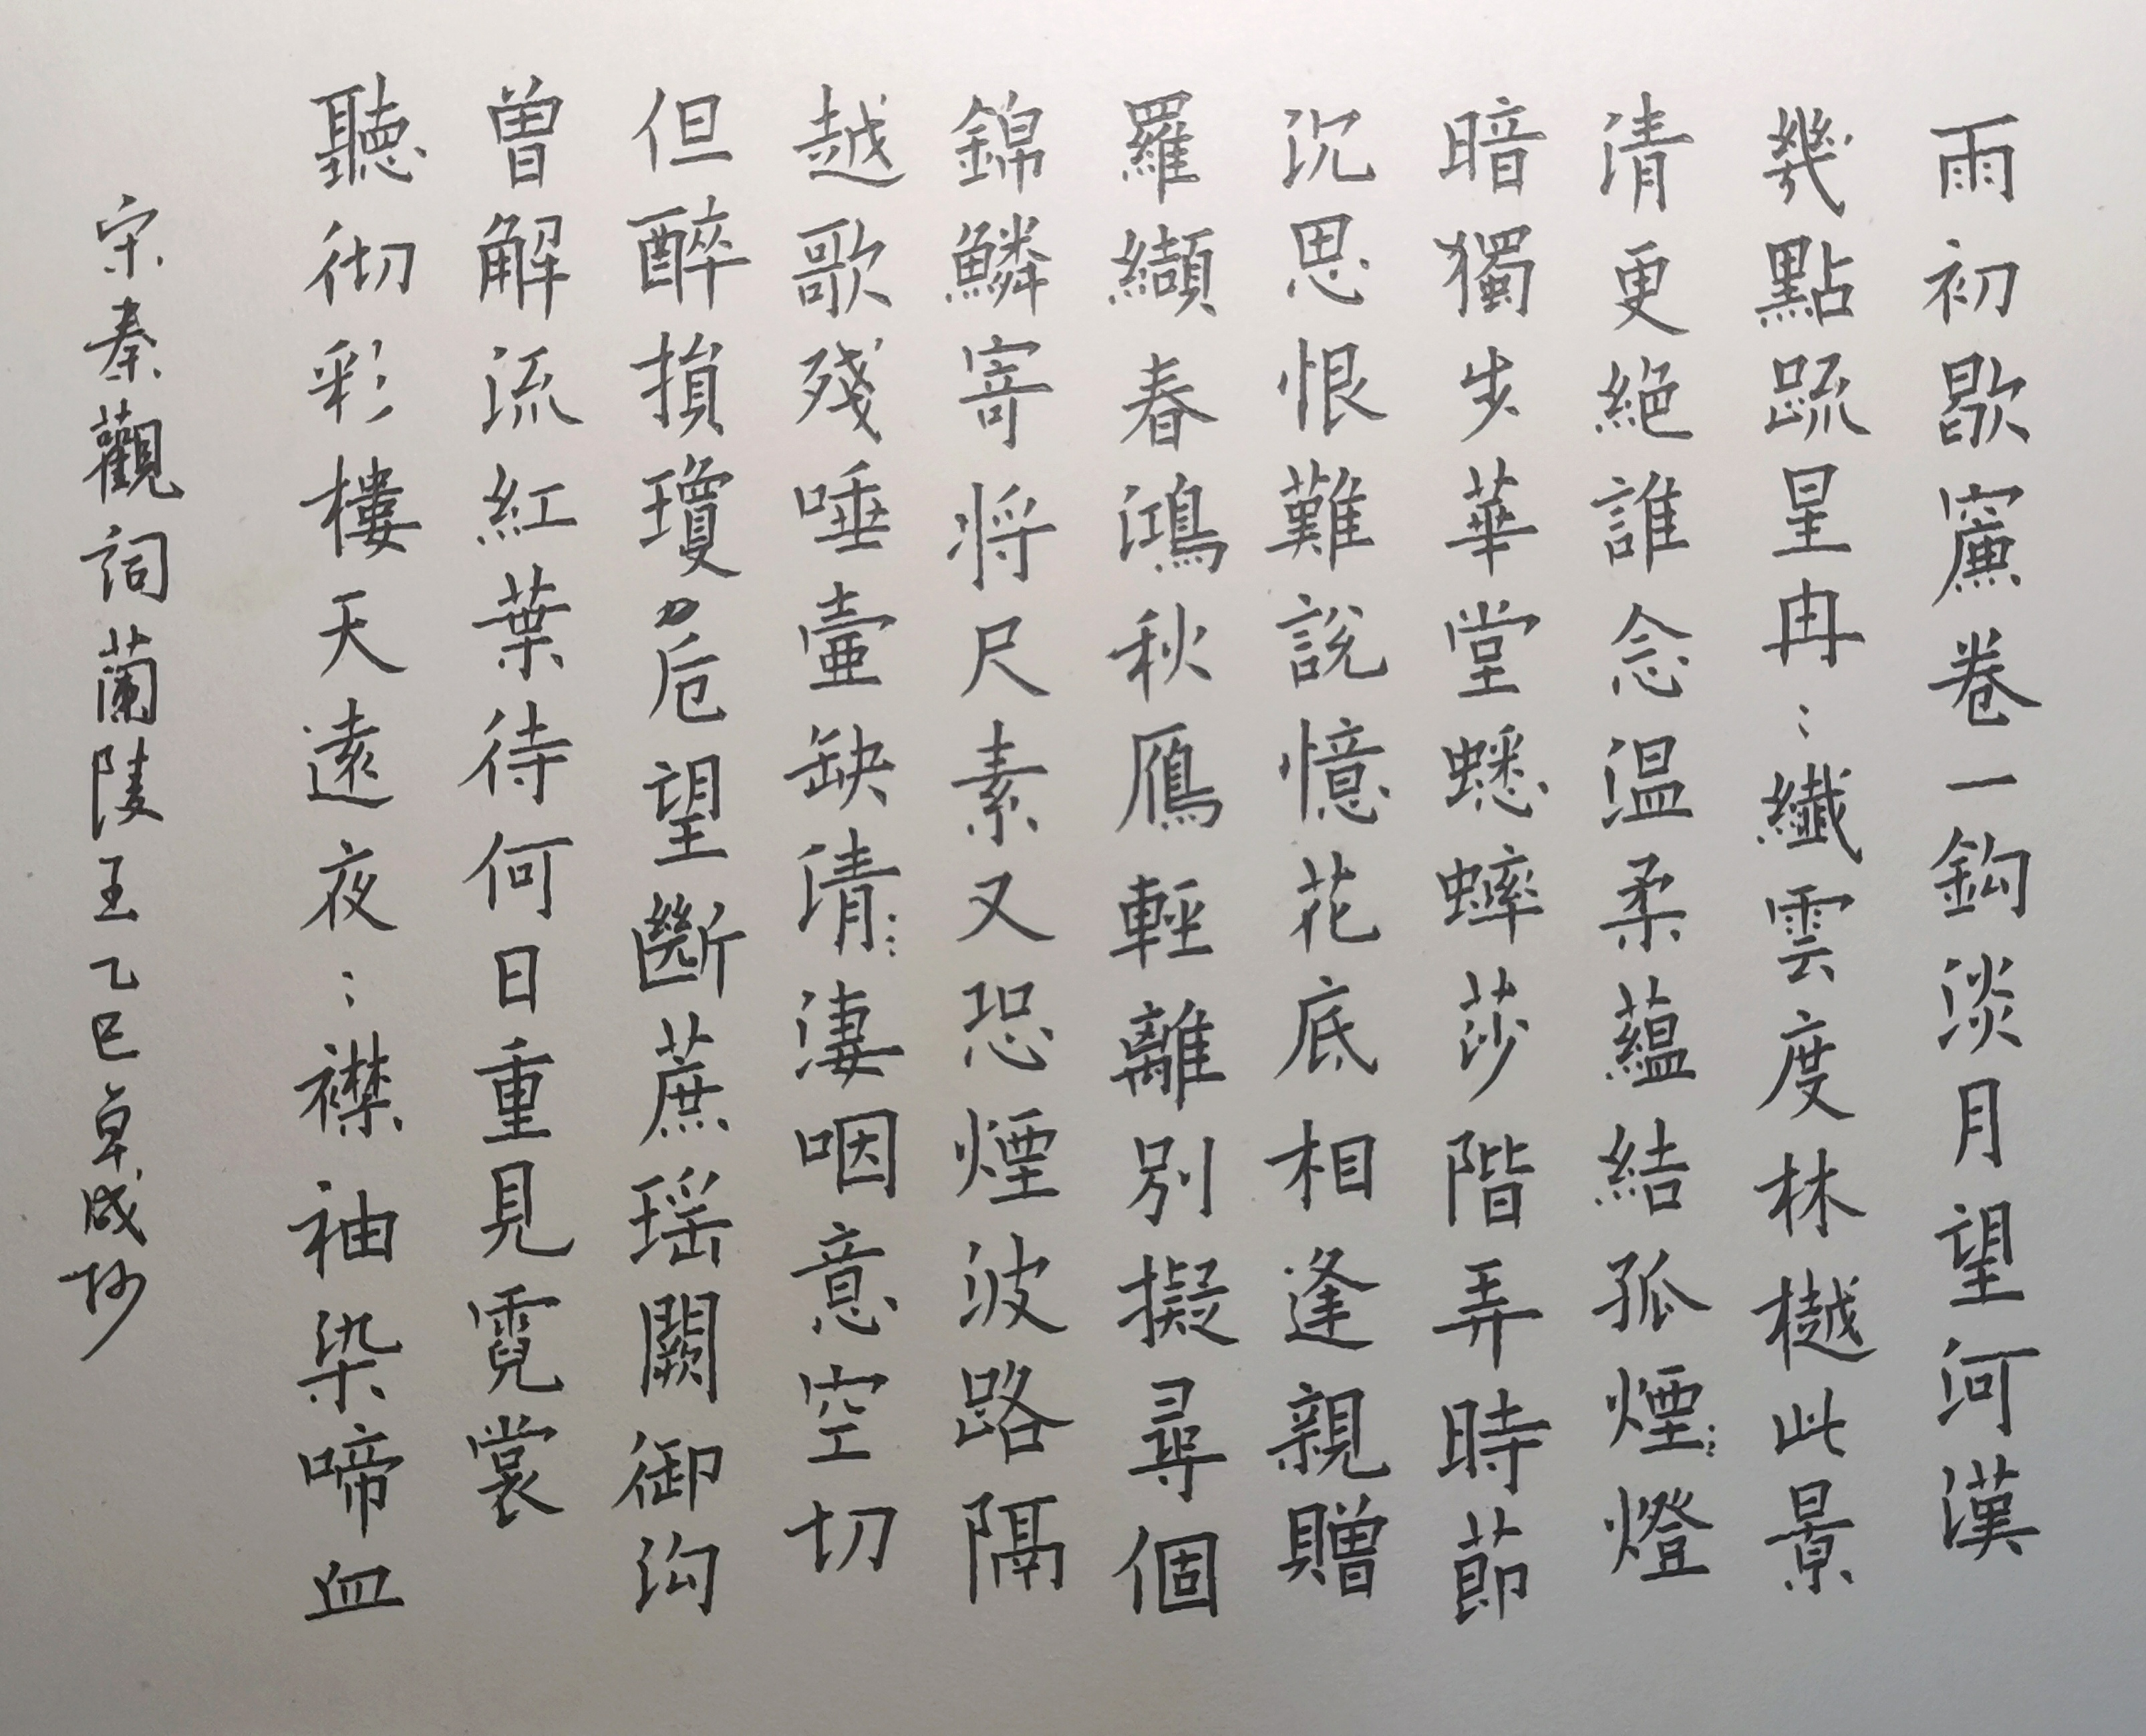 雨初歇簾卷一鈎淡月望河漢
幾點疏星冉：纖雲度林樾此景
清更絕誰念温柔蘊結孤煙：燈
暗獨步華堂蟋蟀莎階弄時節
沉思恨難說憶花底相逢親贈
羅纈春鴻秋鴈輕離別擬尋個
錦鱗寄将尺素又恐煙波路隔
越歌殘唾壷缺倩：淒咽意空切
但醉損瓊卮望斷蔗瑶闕御沟
曾解流紅葉待何日重見霓裳
聽彻彩樓天遠夜：襟袖染啼血
宋秦觀詞蘭陵王乙巳卓成抄